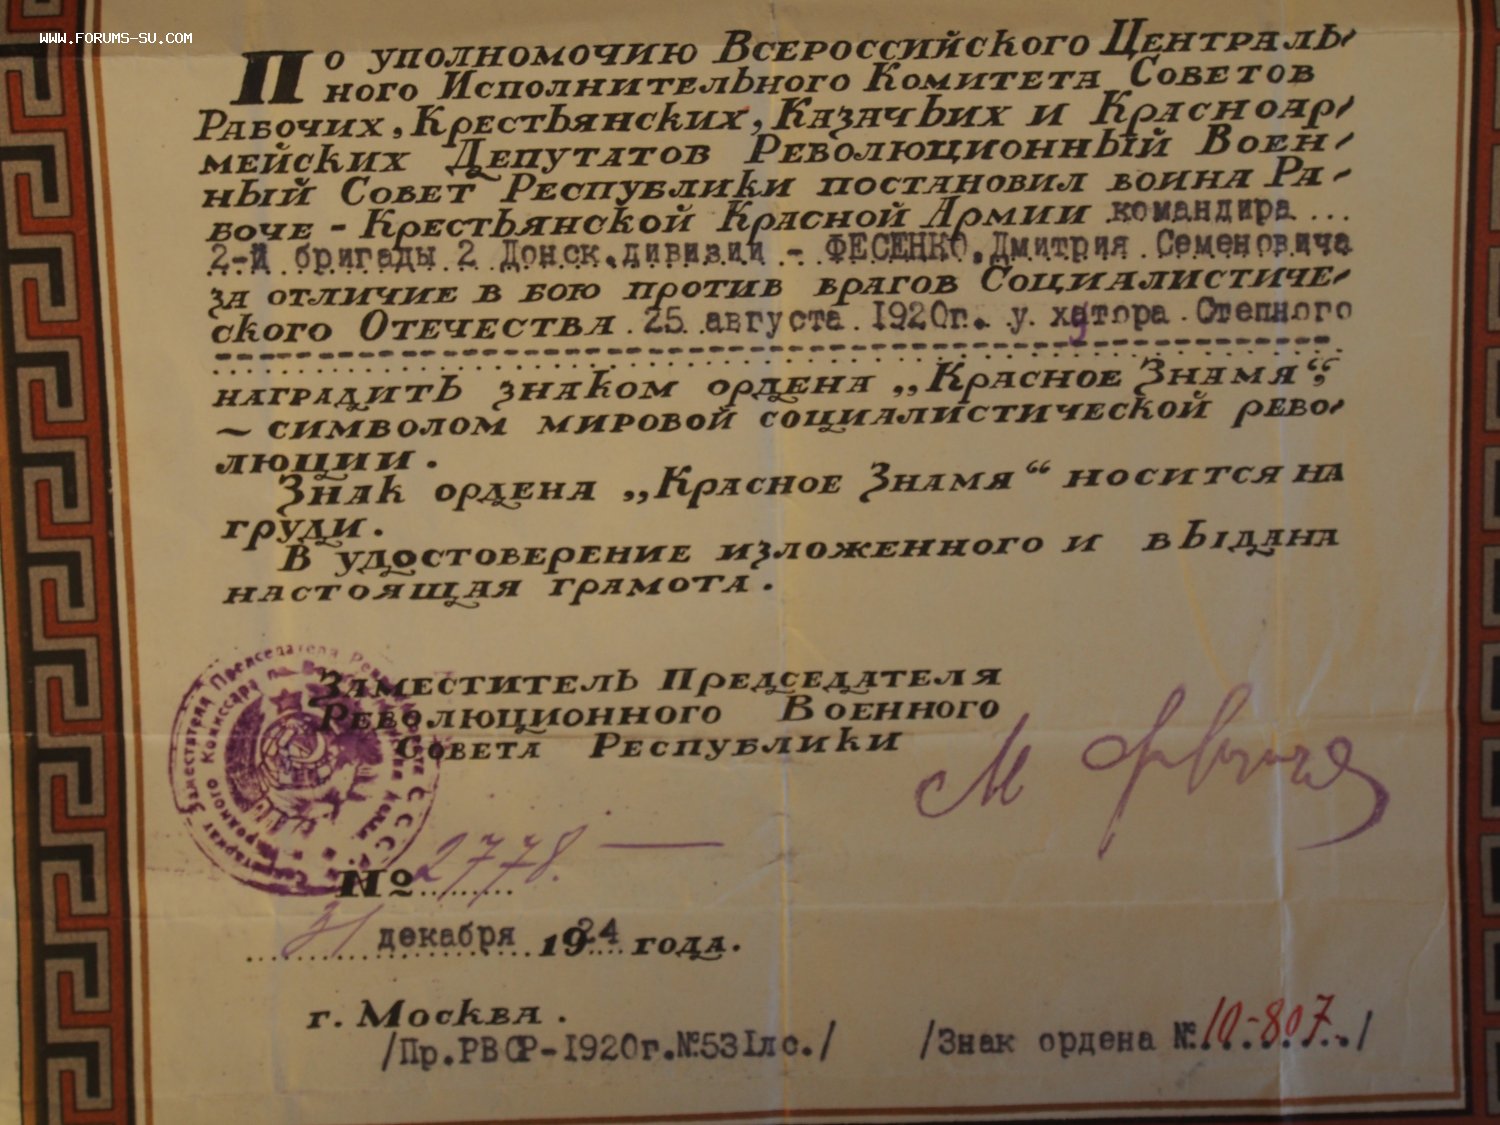 WWW.FORUMS-SU.COM
По уполномочию Всероссийского Централь-
ного Исполнительного Комитета Советов
Рабочих, Крестьянских, Казачьих и Красноар-
мейских Депутатов Революционный Воен-
ный Совет Республики постановил воина Ра-
боче - Крестьянской Красной Армии командира ...
2-й бригады 2 Донск.дивизии - ФЕСЕНКО.Дмитрия Семеновича
за отличие в бою против врагов Социалистиче-
ского Отечества 25 августа 1920г. у хутора Степного
наградить знаком ордена „Красное Знамя“,
— символом мировой социалистической рево-
люции.
Знак ордена „Красное Знамя“ носится на
груди.
В удостоверение изложенного и выдана
настоящая грамота.
Заместитель Председателя
Революционного Военного
Совета Республики
Заместителя Председателя
Народного Комиссара по
СССР
М Фрунзе
№ 2778. —
31 декабря 1924 года.
г. Москва.
/Пр.РВСР-1920г.№531лс./ /Знак ордена №.10-807./